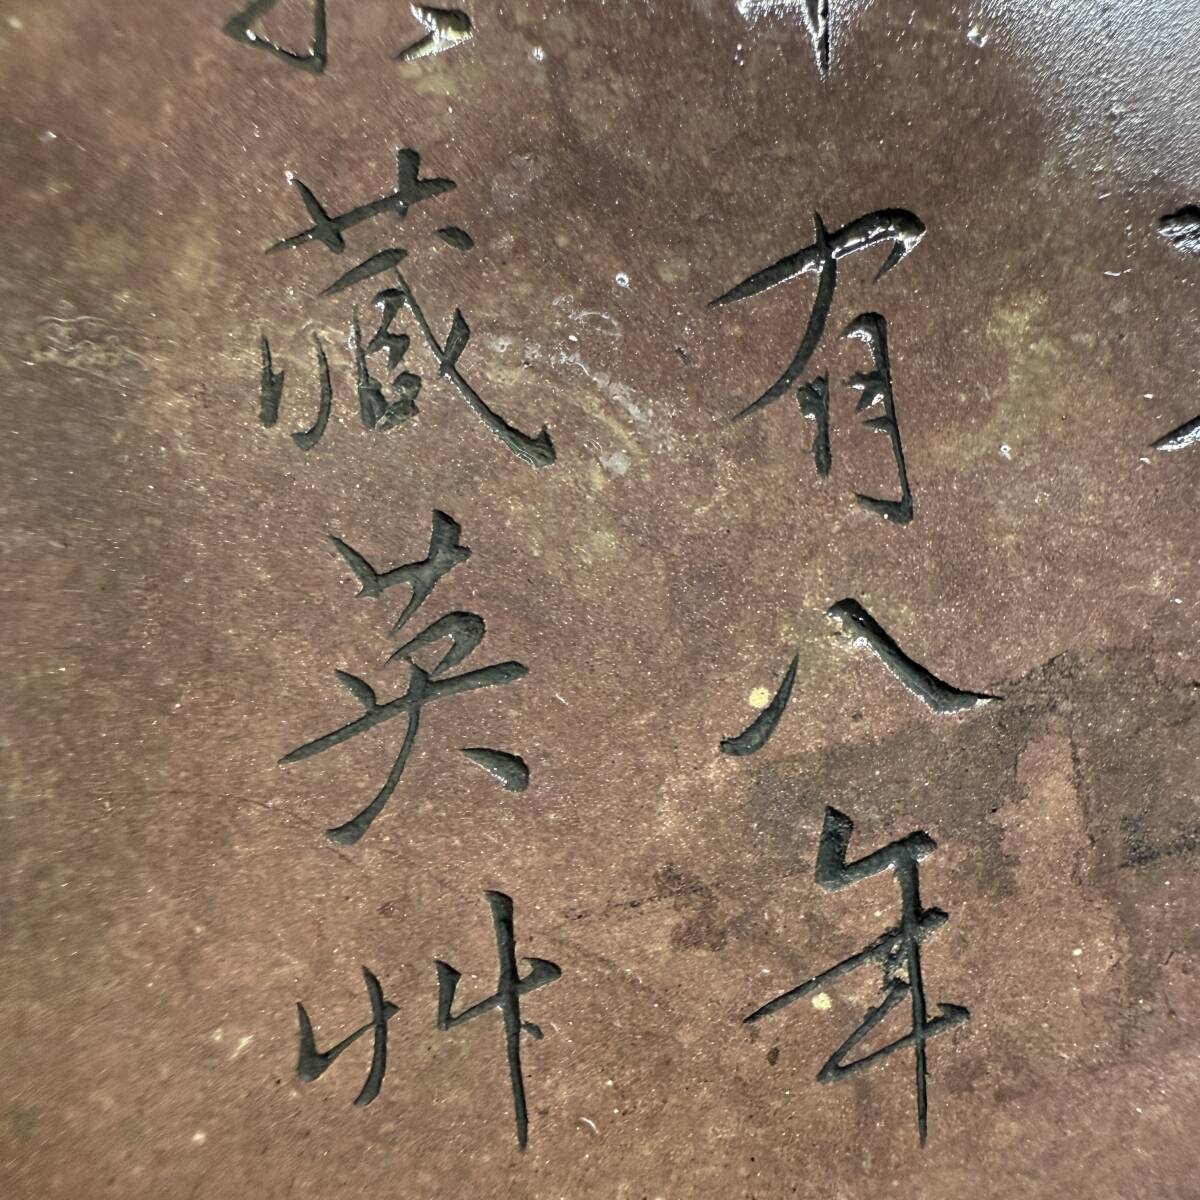 有八年
藏英艸